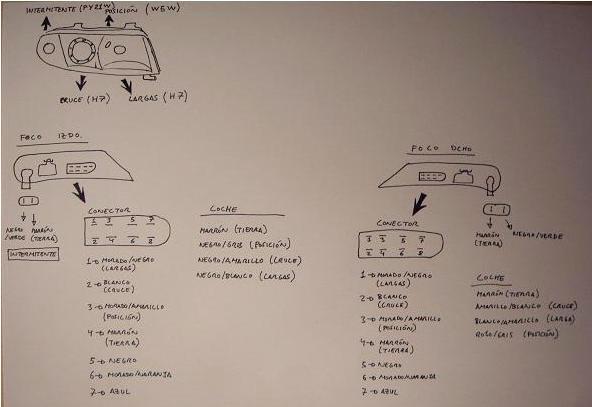 INTERMITENTE (PY21W)
POSICIÓN (W5W)
CRUCE (H7)
LARGAS (H7)
FOCO IZDO.
NEGRO/VERDE
MARRÓN (TIERRA)
INTERMITENTE
CONECTOR
1 3 5 7
2 4 6 8
1→ MORADO/NEGRO
(LARGAS)
2→ BLANCO
(CRUCE)
3→ MORADO/AMARILLO
(POSICIÓN)
4→ MARRÓN
(TIERRA)
5→ NEGRO
6→ MORADO/NARANJA
7→ AZUL
COCHE
MARRÓN (TIERRA)
NEGRO/GRIS (POSICIÓN)
NEGRO/AMARILLO (CRUCE)
NEGRO/BLANCO (LARGAS)
FOCO DCHO
MARRÓN
(TIERRA)
NEGRO/VERDE
CONECTOR
3 5 7
2 4 6 8
1→ MORADO/NEGRO
(LARGAS)
2→ BLANCO
(CRUCE)
3→ MORADO/AMARILLO
(POSICIÓN)
4→ MARRÓN
(TIERRA)
5→ NEGRO
6→ MORADO/NARANJA
7→ AZUL
COCHE
MARRÓN (TIERRA)
AMARILLO/BLANCO (CRUCE)
BLANCO/AMARILLO (LARGA)
ROJO/GRIS (POSICIÓN)